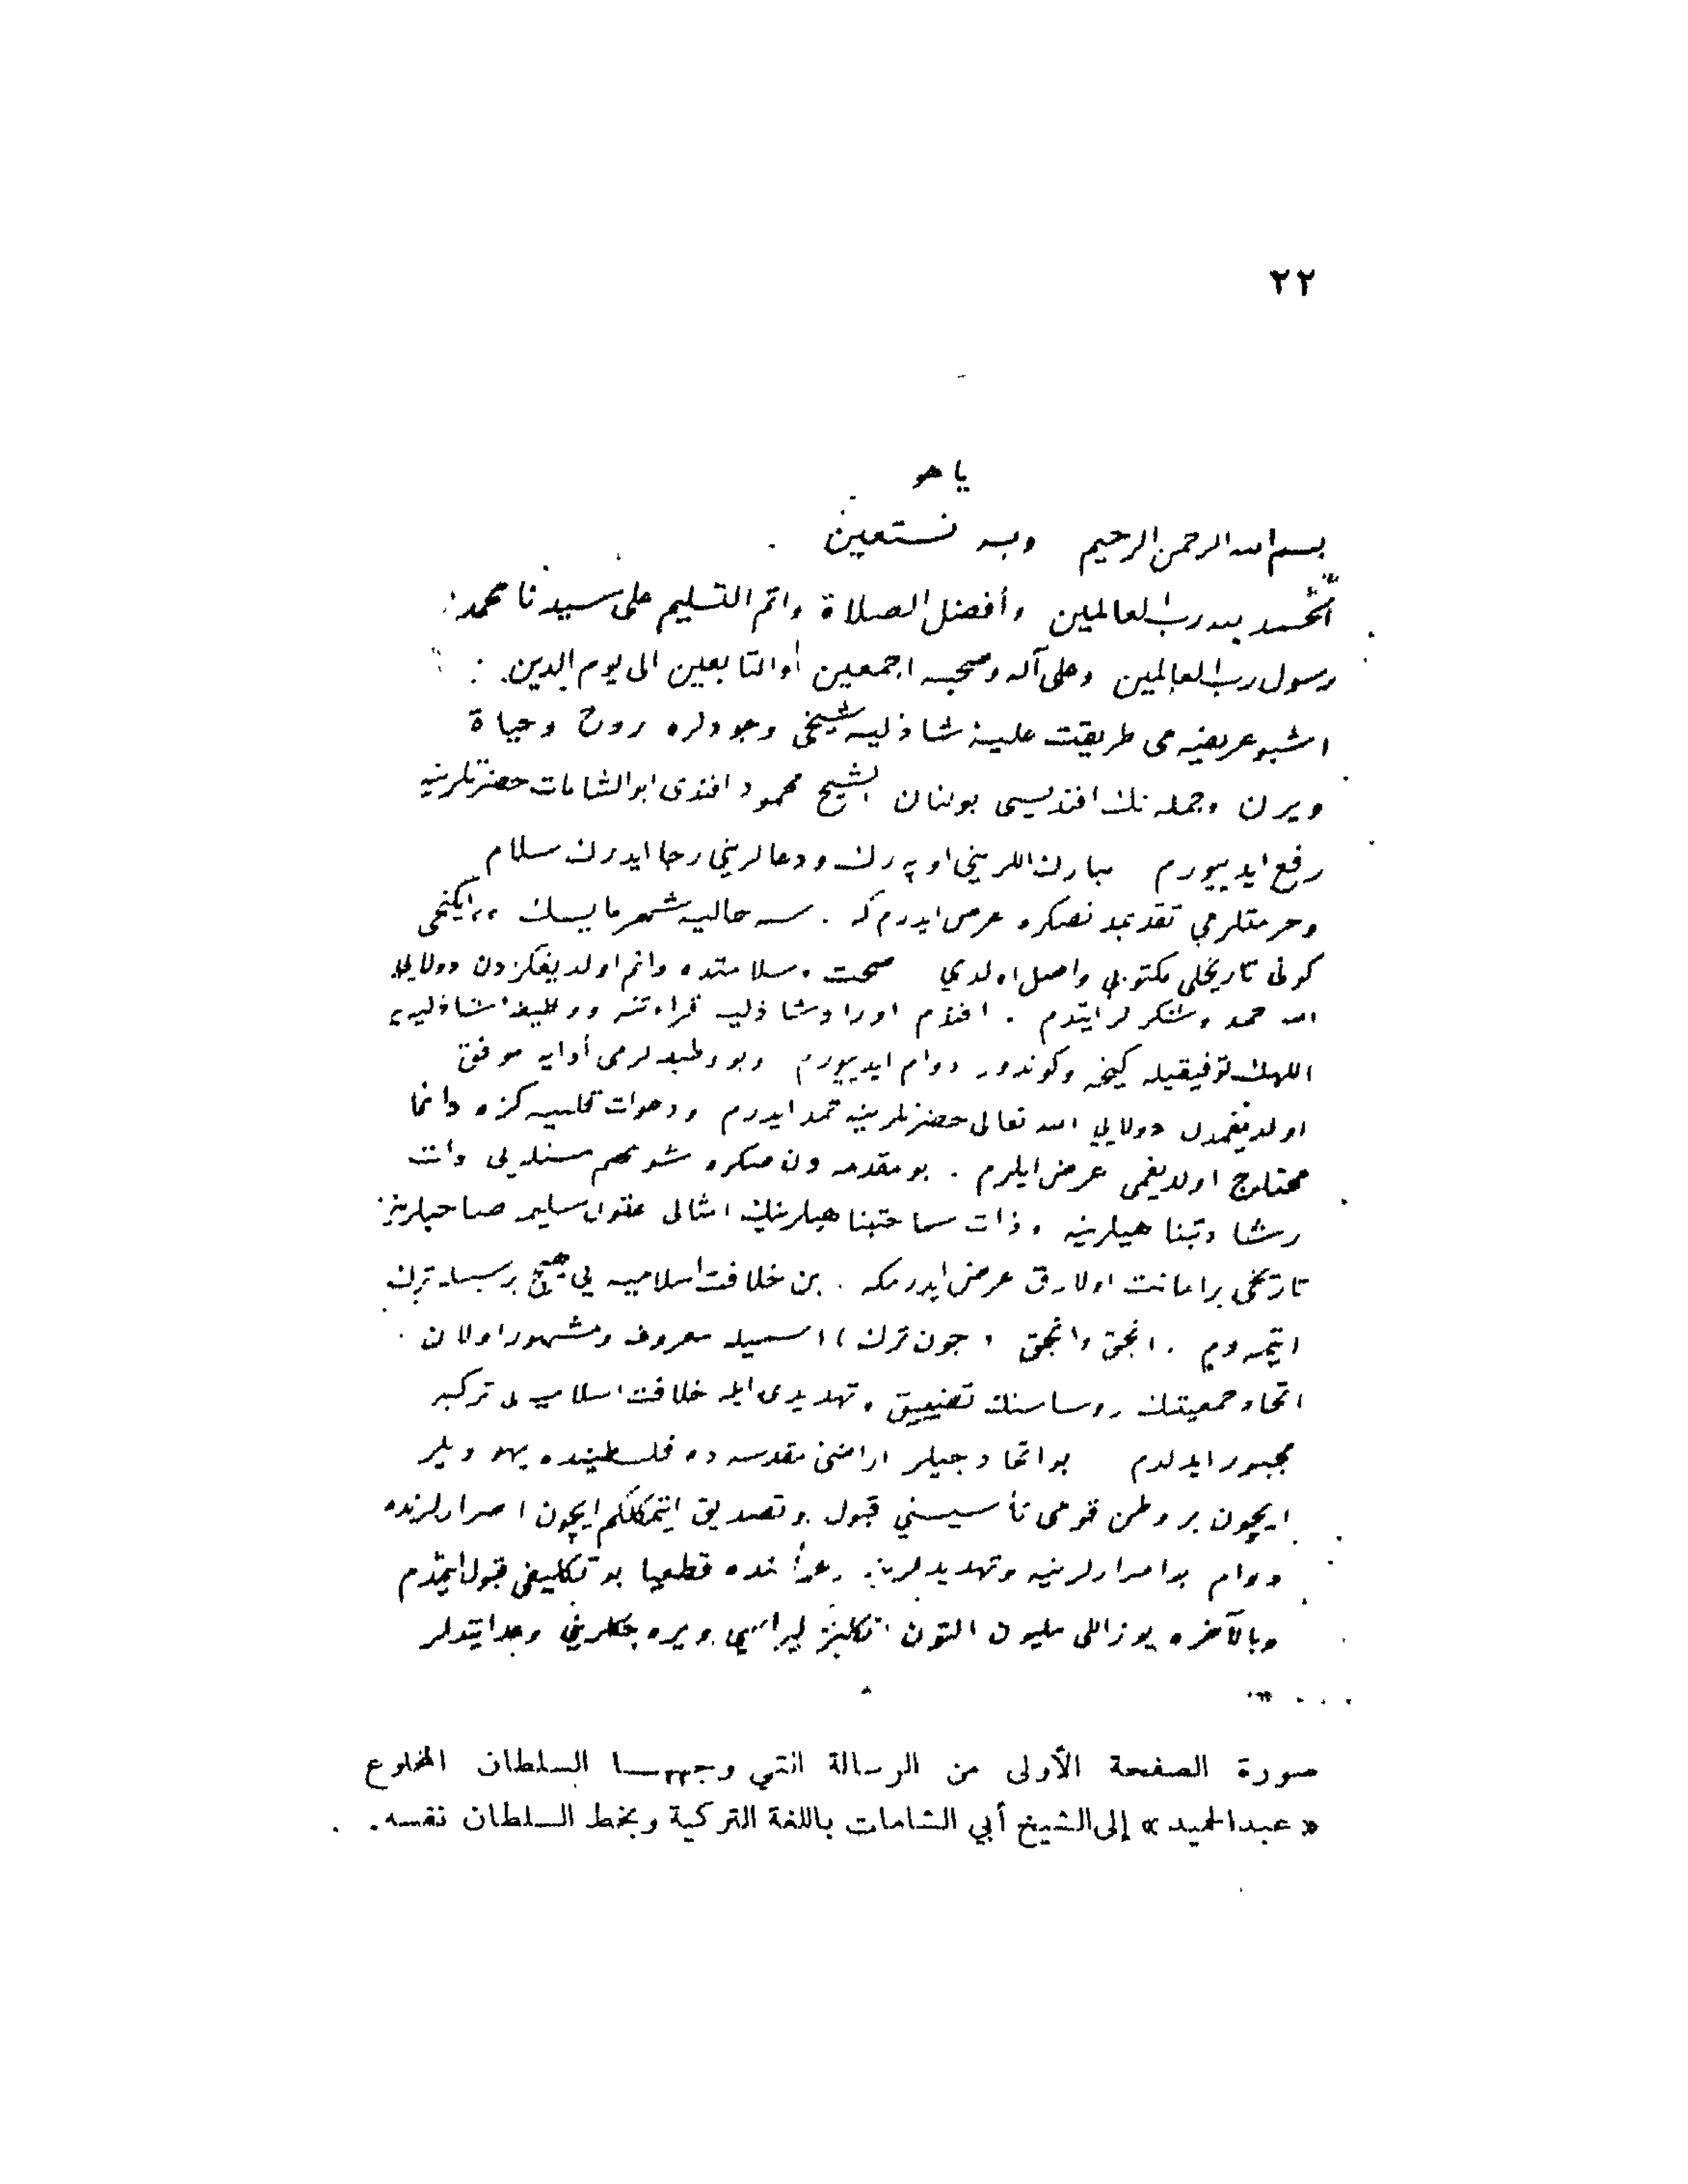 ٢٢
يا هو
بسم الله الرحمن الرحيم وبه نستعين
الحمد لله رب العالمين وأفضل الصلاة واتم التسليم على سيدنا محمد
رسول رب العالمين وعلى آله وصحبه اجمعين والتابعين الى يوم الدين
اشبو عريضه مى طريقت عليۀ شاذليه شيخى وجودلره روح وحياة
ويرن وجمله نك افنديسى بولنان الشيخ محمود افندى ابو الشامات حضرتلرينه
رفع ايدييورم مبارك اللريني اوپه رك ودعالريني رجا ايدرك سلام
وحرمتلرمي تقديمدنصكره عرض ايدرم كه . سنه حاليه شهر مايسك ايكنجى
كونى تاريخلى مكتوبي واصل اولدي صحت وسلامتده دائم اولديغكزدن دولايى
الله حمد وشكرلر ايتدم . افندم اوراد شاذليه قراءتنه ووظيفۀ شاذليه يه
اللهك توفيقيله كيجه وكوندوز دوام ايدييورم وبو وظيفه لرمى أدايه موفق
اولديغمدن دولايي الله تعالى حضرتلرينه حمد ايدرم ودعوات قلبيه كزه دائما
محتاج اولديغمى عرض ايلرم . بو مقدمه دن صكره شو مهم مسئله يى ذات
رشادتپناهيلرينه وذات سماحتپناهيلرينك امثالى عقول سليمه صاحبلرينه
تاريخى بر امانت اولارق عرض ايدرمكه . بن خلافت اسلاميه يي هيچ بر سببله ترك
ايتمه دم . انجق وانجق ( جون ترك ) اسميله معروف ومشهور اولان
اتحاد جمعيتنك روساسنك تضييق وتهديدى ايله خلافت اسلاميه يى تركه
مجبور ايدلدم بو اتحادجيلر اراضئ مقدسه ده فلسطينده يهوديلر
ايچون بر وطن قومى تأسيسني قبول وتصديق ايتمكلكم ايچون اصرارلرنده
دوام بو اصرارلرينه وتهديدلرينه رغماً بنده قطعيا بو تكليفى قبول ايتمدم
وبالآخره يوز اللى مليون التون انكليز ليراسي ويره جكلريني وعد ايتديلر
صورة الصفحة الأولى من الرسالة التي وجهها السلطان المخلوع
« عبدالحميد » إلى الشيخ أبي الشامات باللغة التركية وبخط السلطان نفسه.